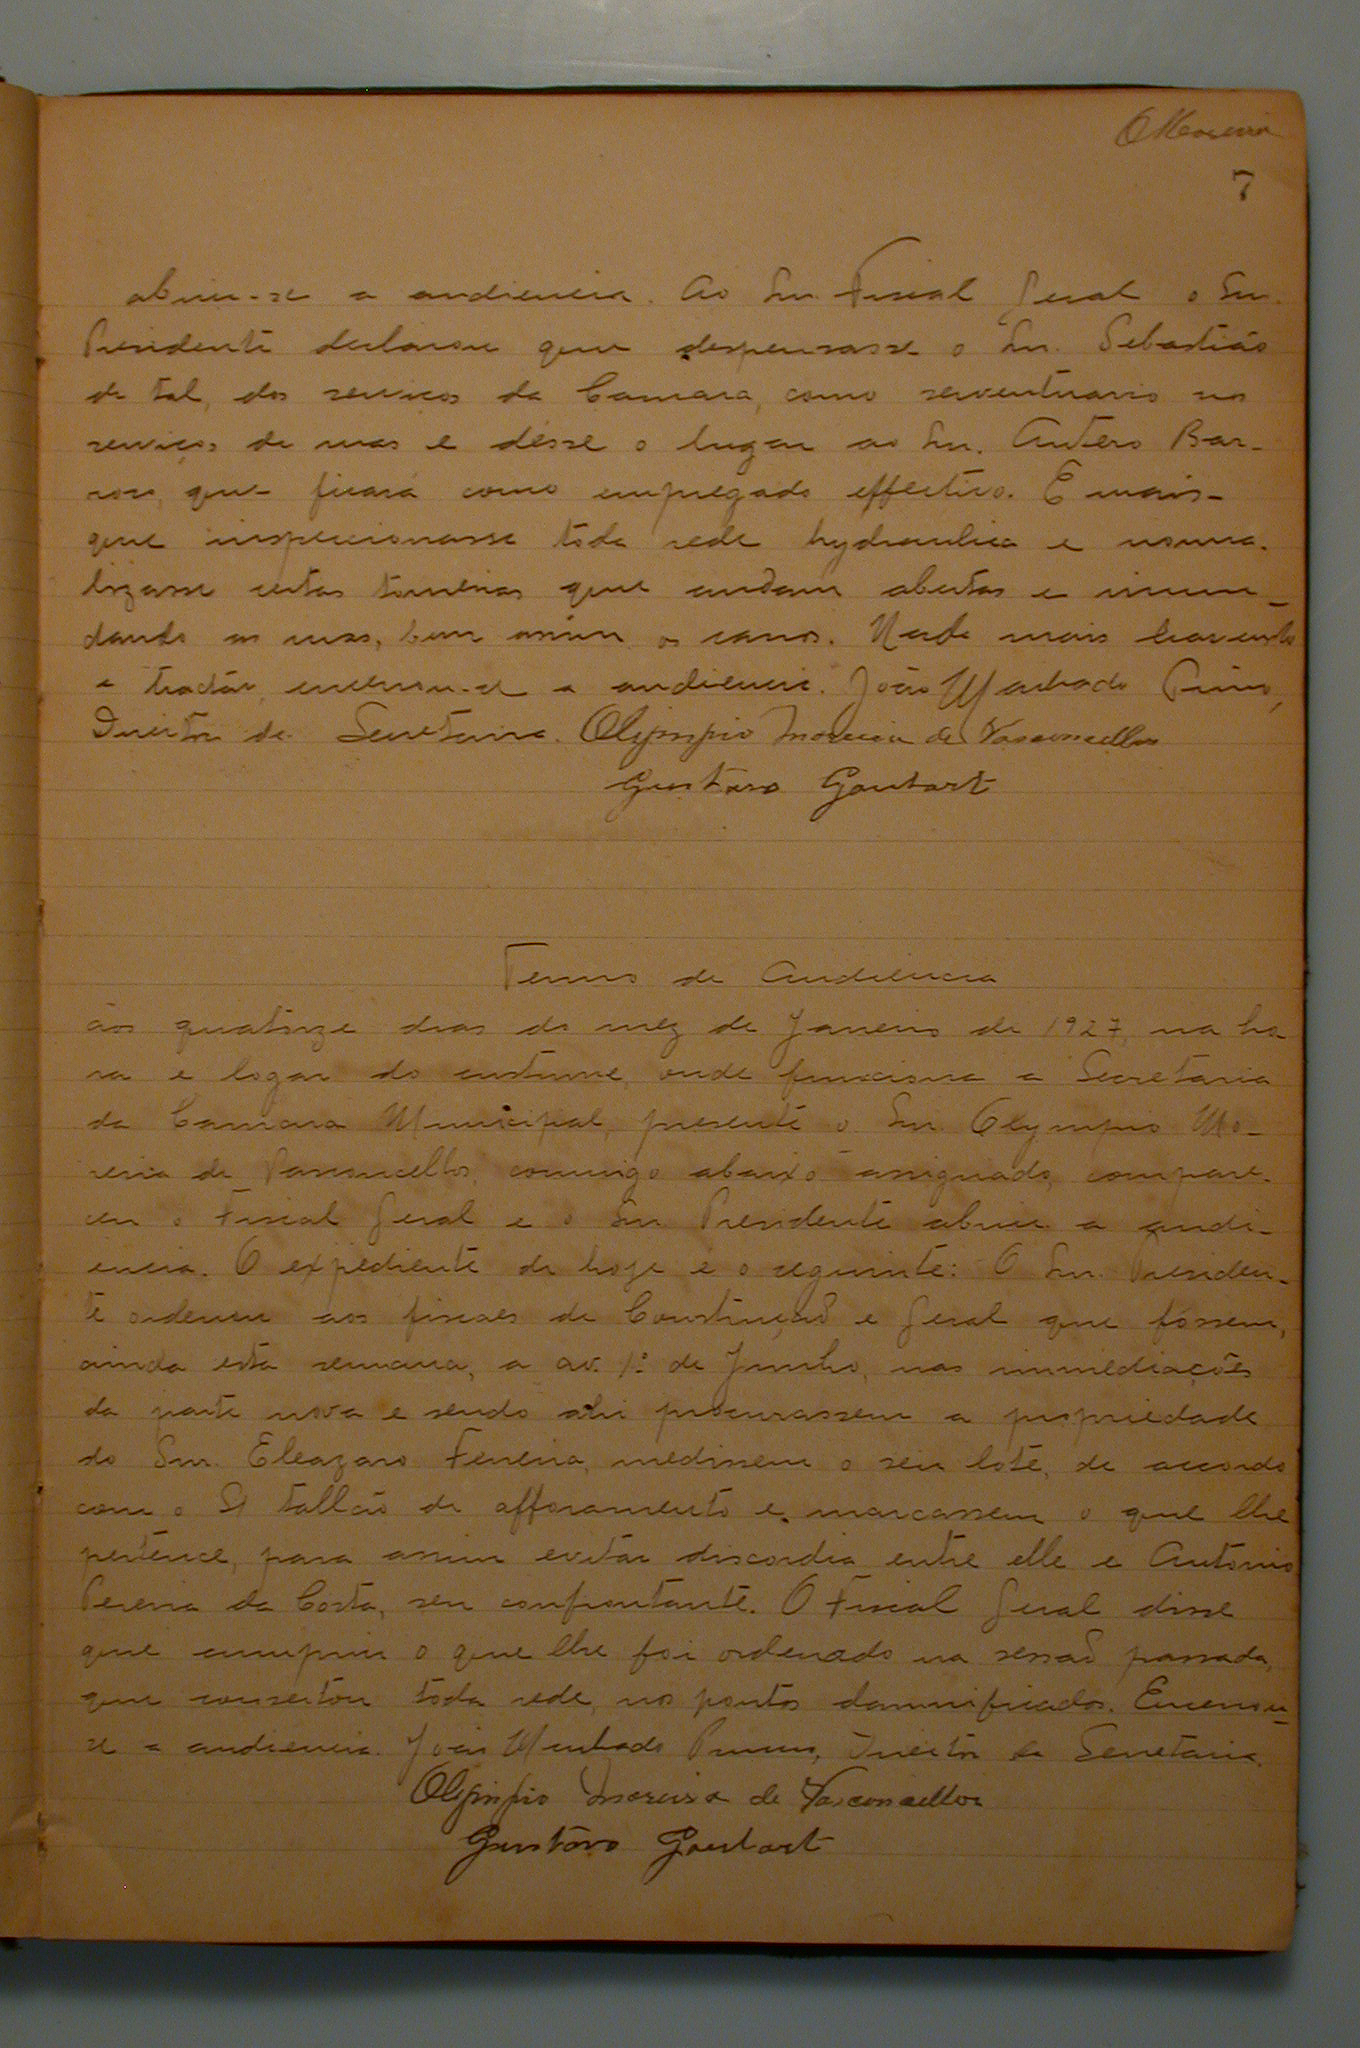 OMoreira
7
abriu-se a audiencia. Ao Snr. Fiscal Geral o Snr.
Presidente declarou que despensasse o Snr. Sebastião
de tal, dos serviços da Camara, como serventuario nos
serviços de ruas e désse o lugar ao Snr. Antero Bar-
roso, que ficará como empregado effectivo. E mais
que inspeccionasse toda rede hydraulica e norma-
lizasse certas torneiras que andam abertas e inun-
dando as ruas, bem assim os canos. Nada mais havendo
a tractar, encerrou-se a audiencia. João Machado Primo,
Director da Secretaria. Olympio Moreira de Vasconcellos
Gustavo Goubart
Termo de Audiencia
Aos quatorze dias do mez de Janeiro de 1927, na ho-
ra e logar do custume, onde funcciona a Secretaria
da Camara Municipal, presente o Snr. Olympio Mo-
reira de Vasconcellos, commigo abaixo assignado, compare-
ceu o Fiscal Geral e o Snr. Presidente abriu a audi-
encia. O expediente de hoje é o seguinte: O Snr. Presiden-
te ordenou aos fiscaes de Construcção e Geral que fóssem,
ainda esta semana, a av. 1º de Junho, nas immediações
da parte nova e sendo ahi procurassem a propriedade
do Snr. Eleazaro Ferreira, medissem o seu lote, de accordo
com o tallão de afforamento e marcassem o que lhe
pertence, para assim evitar discordia entre elle e Antonio
Pereira da Costa, seu confrontante. O Fiscal Geral disse
que cumpriu o que lhe foi ordenado na sessão passada,
que concertou toda rede, nos pontos damnificados. Encerrou-
se a audiencia. João Machado Primo, Director da Secretaria.
Olympio Moreira de Vasconcellos
Gustavo Goubart